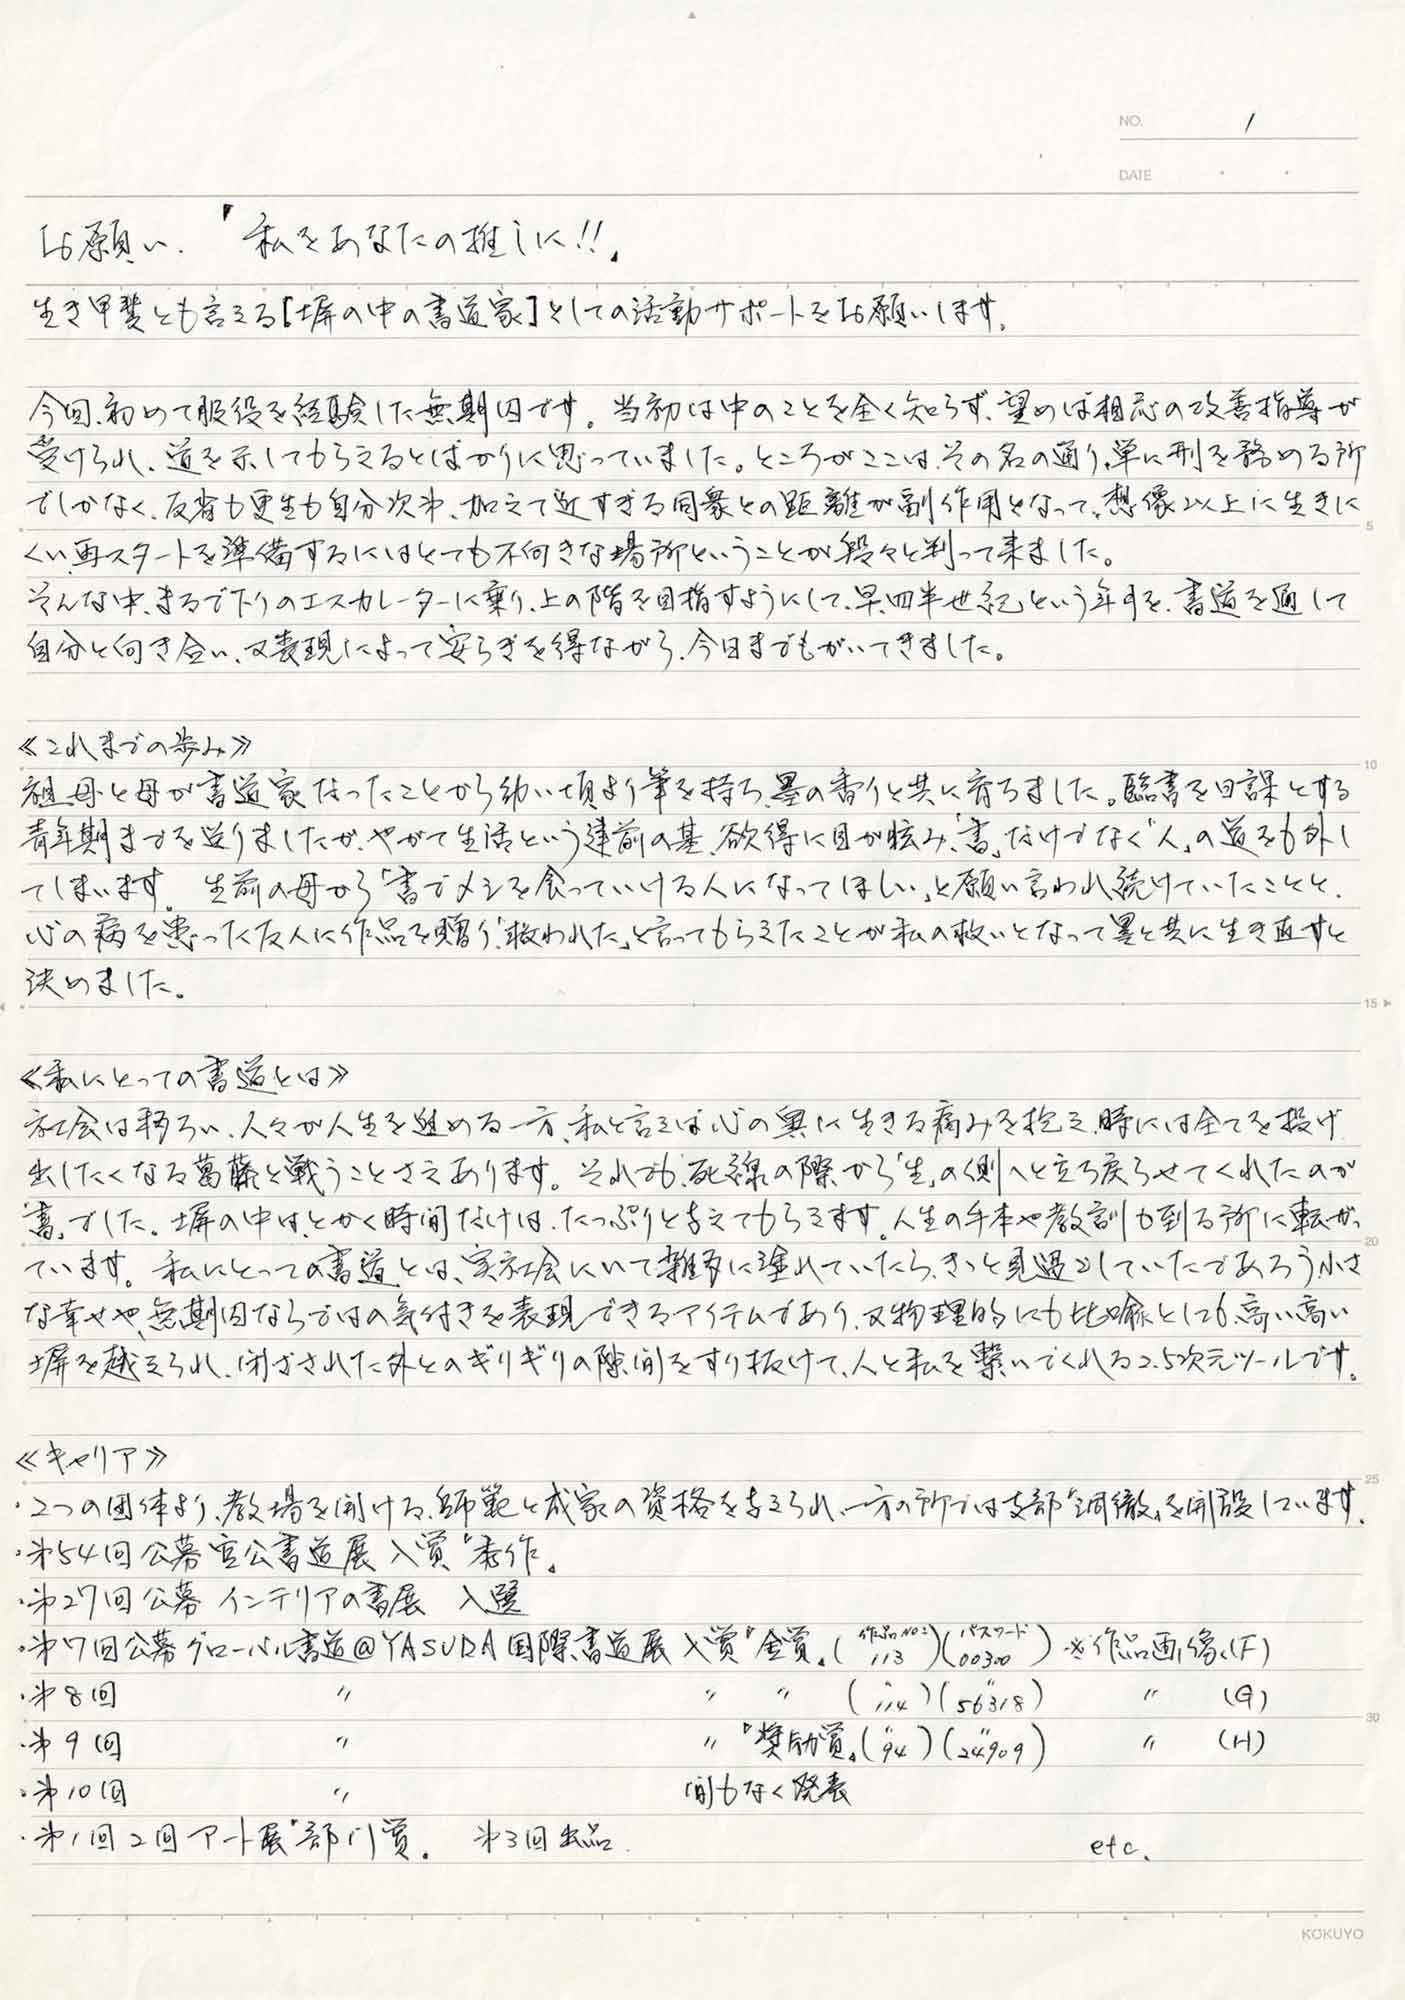 NO. 1
DATE
お願い.『私をあなたの推しに!!』
生き甲斐とも言える[塀の中の書道家]としての活動サポートをお願いします。
今回、初めて服役を経験した無期囚です。当初は中のことを全く知らず、望めば相応の改善指導が
受けられ、道を示してもらえるとばかりに思っていました。ところがここは、その名の通り、単に刑を務める所
でしかなく、反省も更生も自分次第、加えて近すぎる同衆との距離が副作用となって、想像以上に生きに
くい、再スタートを準備するにはとても不向きな場所ということが段々と判って来ました。
そんな中、まるで下りのエスカレーターに乗り、上の階を目指すようにして、早、四半世紀という年月を、書道を通して
自分と向き合い、又表現によって安らぎを得ながら、今日までもがいてきました。
≪これまでの歩み≫
祖母と母が書道家だったことから幼い頃より筆を持ち、墨の香りと共に育ちました。臨書を日課とする
青年期までを送りましたが、やがて生活という建前の基、欲得に目が眩み、「書」だけでなく「人」の道をも外し
てしまいます。生前の母から「書でメシを食っていける人になってほしい」と願い言われ続けていたことと、
心の病を患った友人に作品を贈り「救われた」と言ってもらえたことが私の救いとなって墨と共に生き直すと
決めました。
≪私にとっての書道とは≫
社会は移ろい、人々が人生を進める一方、私と言えば心の奥に生きる痛みを抱え、時には全てを投げ
出したくなる葛藤と戦うことさえあります。それでも、死線の際から「生」の側へと立ち戻らせてくれたのが
「書」でした。塀の中は、とかく時間だけは、たっぷりと与えてもらえます。人生の手本や教訓も到る所に転がっ
ています。私にとっての書道とは、実社会にいて雑多に塗れていたら、きっと見過ごしていたであろう小さ
な幸せや、無期囚ならではの気付きを表現できるアイテムであり、又物理的にも比喩としても、高い高い
塀を越えられ、閉ざされた外とのギリギリの隙間をすり抜けて、人と私を繋いでくれる2.5次元ツールです。
≪キャリア≫
・2つの団体より、教場を開ける、師範と成家の資格を与えられ、一方の所では支部「洞徹」を開設しています。
・第54回公募 宣公書道展 入賞『秀作』
・第27回公募 インテリアの書展 入選
・第7回公募グローバル書道@YASUDA国際書道展 入賞『金賞』(作品NO: 113)(パスワード 00300) ※作品画像(F)
・第8回 〃 〃 〃 (〃 114)(〃 56318) 〃 (G)
・第9回 〃 〃『奨励賞』(〃 94)(〃 24909) 〃 (H)
・第10回 〃 間もなく発表
・第1回2回アート展『部門賞』 第3回出品. etc.
5
10
15
20
25
30
KOKUYO